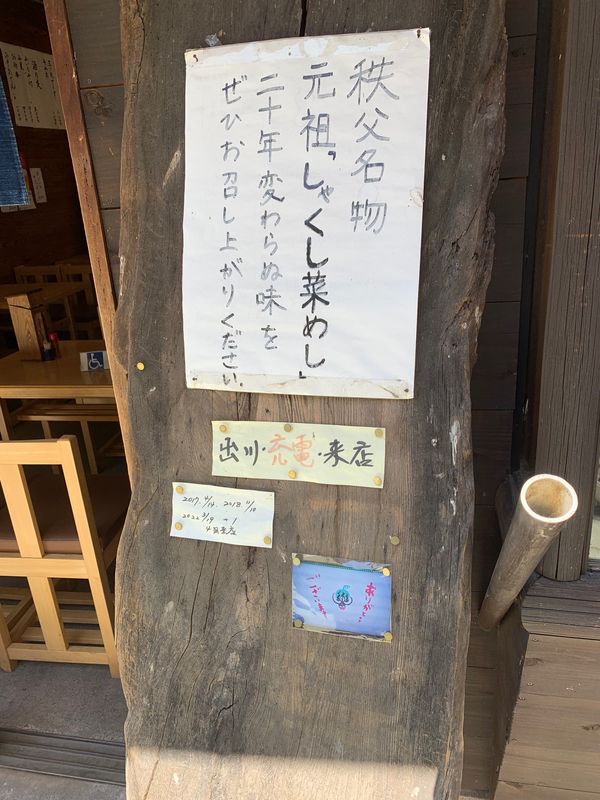 秩父名物
元祖「しゃくし菜めし」
二十年変わらぬ味を
ぜひお召し上がりください。
出川・充電・来店
2017. 4/14. 2018 11/10
2022 3/19
来店
ありがとう
ございます